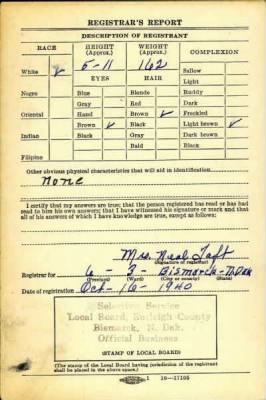 REGISTRAR'S REPORT
DESCRIPTION OF REGISTRANT
RACE HEIGHT (Approx.) WEIGHT (Approx.) COMPLEXION
White ✓ 5-11 162 Sallow
EYES HAIR Light
Negro Blue Blonde Ruddy
Gray Red Dark
Oriental Hazel Brown ✓ Freckled
Brown ✓ Black Light brown ✓
Indian Black Gray Dark brown
Bald Black
Filipino
Other obvious physical characteristics that will aid in identification
None
I certify that my answers are true; that the person registered has read or has had
read to him his own answers; that I have witnessed his signature or mark and that
all of his answers of which I have knowledge are true, except as follows:
Mrs. Neal Taft
(Signature of registrar)
Registrar for 6 - 3 - Bismarck - N Dak
(Precinct) (Ward) (City or county) (State)
Date of registration Oct - 16 - 1940
Selective Service
Local Board, Burleigh County
Bismarck, N. Dak.
Official Business
(STAMP OF LOCAL BOARD)
(The stamp of the Local Board having jurisdiction of the registrant
shall be placed in the above space.)
16—17105